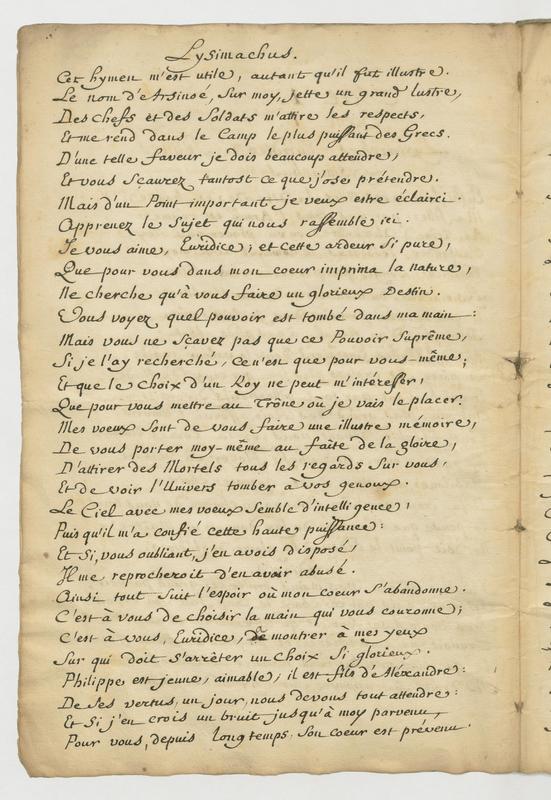 Lysimachus.
Cet hymen m'est utile, autant qu'il fut illustre.
Le nom d'Arsinoé, Sur moy, jette un grand lustre,
Des chefs et des Soldats m'attire les respects,
Et me rend dans le Camp le plus puissant des Grecs.
D'une telle faveur je dois beaucoup attendre,
Et vous Sçaurez tantost ce que j'ose prétendre.
Mais d'un Point important je veux estre éclairci.
Apprenez le Sujet qui nous rassemble ici.
Je vous aime, Euridice; et cette ardeur Si pure,
Que pour vous dans mon coeur imprima la nature,
Ne cherche qu'à vous faire un glorieux Destin.
Vous voyez quel pouvoir est tombé dans ma main:
Mais vous ne Sçavez pas que ce Pouvoir Suprême,
Si je l'ay recherché, ce n'est que pour vous-même;
Et que le choix d'un Roy ne peut m'intéresser,
Que pour vous mettre au Trône où je vais le placer.
Mes voeux Sont de vous faire une illustre mémoire,
De vous porter moy-même au faîte de la gloire,
D'attirer des Mortels tous les regards Sur vous,
Et de voir l'Univers tomber à vos genoux.
Le Ciel avec mes voeux Semble d'intelligence,
Puis qu'il m'a confié cette haute puissance:
Et Si, vous oubliant, j'en avois disposé,
Il me reprocheroit d'en avoir abusé.
Ainsi tout Suit l'espoir où mon coeur S'abandonne.
C'est à vous de choisir la main qui vous couronne;
C'est à vous, Euridice, de montrer à mes yeux
Sur qui doit S'arrêter un Choix Si glorieux.
Philippe est jeune, aimable, il est fils d'Aléxandre:
De Ses vertus, un jour, nous devons tout attendre:
Et Si j'en crois un bruit jusqu'à moy parvenu,
Pour vous, depuis longtemps, Son coeur est prévenu.